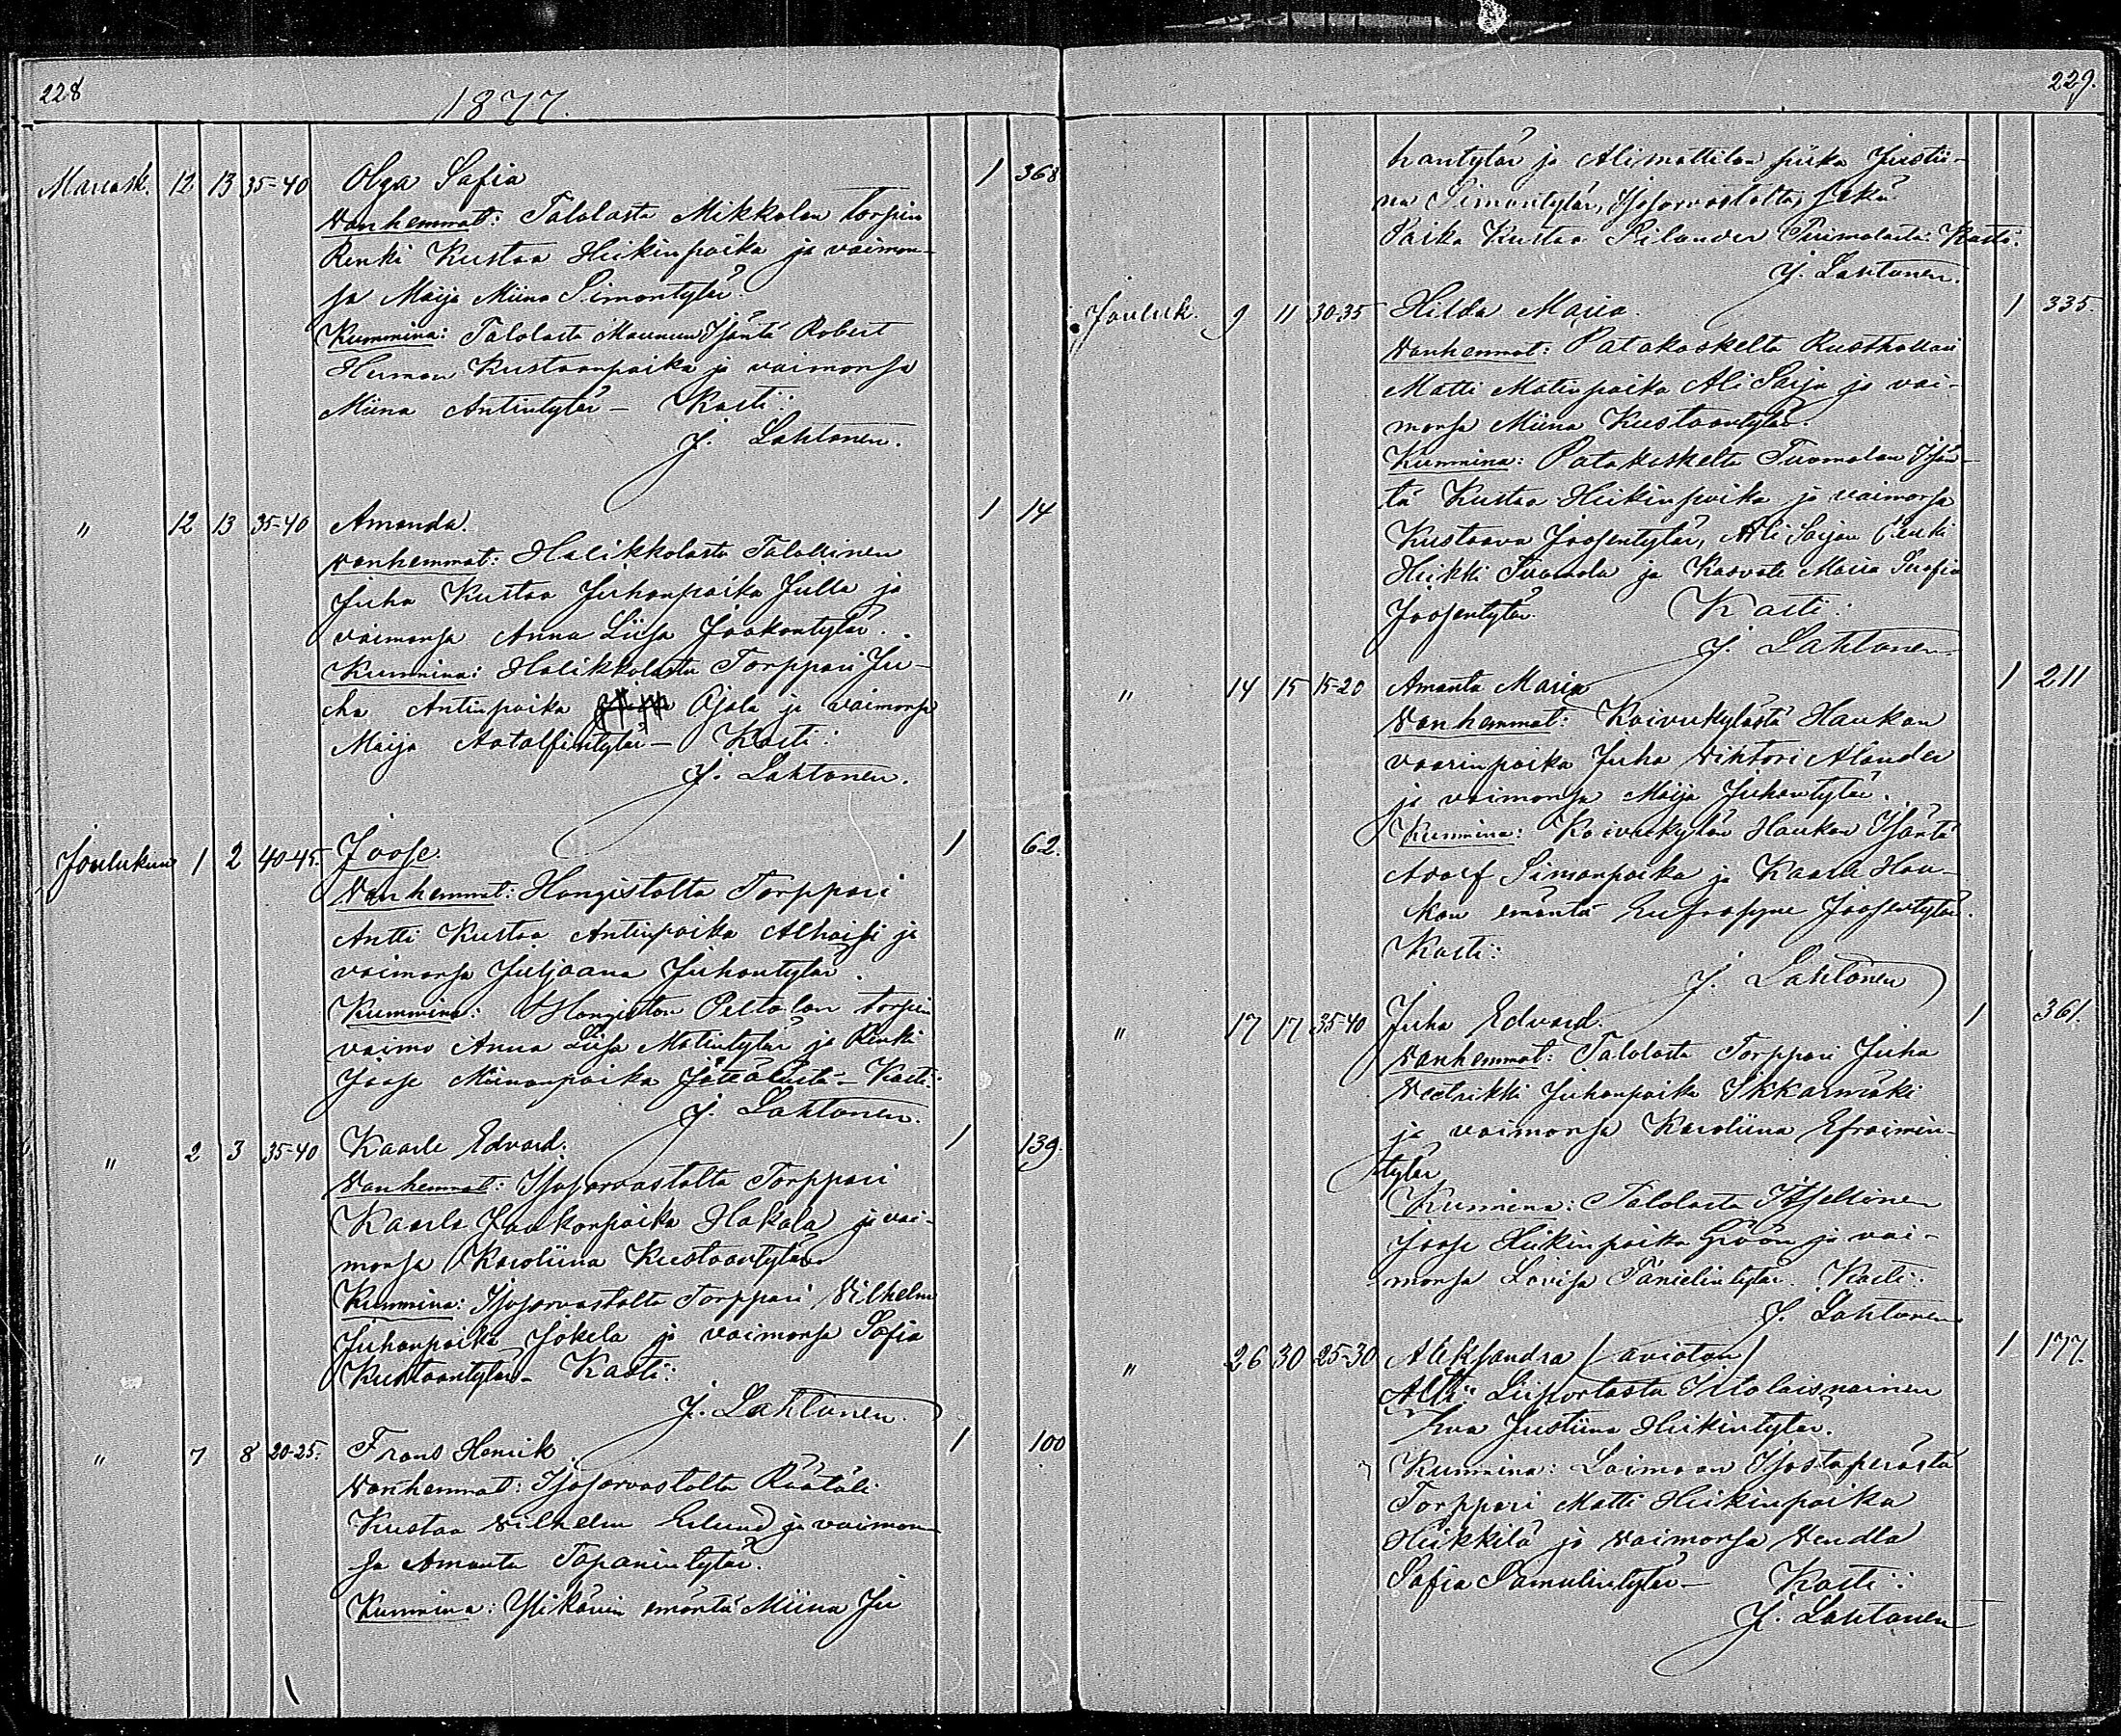 228
1877.
Marrask. 12 13 35-40 Olga Sofia 1 368
Vanhemmat: Talolasta Mikkolan torpin
Renki Kustaa Heikinpoika ja vaimon-
sa Maija Miina Simontytär.
Kummina: Talolasta Maunun Isäntä Robert
Herman Kustaanpoika ja vaimonsa
Miina Antintytär – Kasti:
J. Lahtonen.
" 12 13 35-40 Amanda. 1 14
Vanhemmat: Halikkolasta Talollinen
Juha Kustaa Juhanpoika Julla ja
vaimonsa Anna Liisa Jaakontytär.
Kummina: Halikkolasta Torppari Ju-
ha Antinpoika Ojala ja vaimonsa
Maija Aatolfintytär – Kasti:
J. Lahtonen.
Joulukuu 1 2 40-45. Joose. 1 62.
Vanhemmat: Hongistolta Torppari
Antti Kustaa Antinpoika Alhaisi ja
vaimonsa Juljaana Juhontytär.
Kummina: Hongiston Peltolan torpin
vaimo Anna Liisa Matintytär ja Renki
Joose Miinanpoika – Kasti:
J. Lahtonen.
" 2 3 35-40 Kaarle Edvard. 1 139.
Vanhemmat: Isosorvastolta Torppari
Kaarle Jaakonpoika Hakala ja vai-
monsa Karoliina Kustaantytär
Kummina: Isosorvastolta Torppari Vilhelm
Juhanpoika Jokela ja vaimonsa Sofia
Kustaantytär – Kasti:
J. Lahtonen.
" 7 8 20-25. Frans Henrik 1 100
Vanhemmat: Isosorvastolta Räätäli
Kustaa Vilhelm Erlund ja vaimon-
sa Amanta Tapanintytär.
Kummina: Ylikännin emäntä Miina Ju
229.
hantytär ja Alimattilan piika Justii-
na Simontytär, Isosorvastolta, sekä
Poika Kustaa Pilander Kasti:
J. Lahtonen.
Jouluk. 9 11 30-35 Hilda Maria. 1 335.
Vanhemmat: Patakoskelta Rusthollari
Matti Matinpoika Ali Sarja ja vai-
monsa Miina Kustaantytär.
Kummina: Patakoskelta Tuomolan Isän-
tä Kustaa Heikinpoika ja vaimonsa
Kustaava Joosentytär, Ali Sarjan Renki
Heikki Tuomola ja Kasvate Maria Suofia
Joosentytär. Kasti:
J. Lahtonen.
" 14 15 15-20 Amanta Maria 1 211
Vanhemmat: Koivukylästä Haukan
vaarinpoika Juha Vihtori Alander
ja vaimonsa Maija Juhantytär.
Kummina: Koivukylän Haukan Isäntä
Adolf Simonpoika ja Kaarle Hau-
kan emäntä Eufrosyne Joosentytär.
Kasti:
J. Lahtonen
" 17 17 35-40 Juha Edvard. 1 361.
Vanhemmat: Talolasta Torppari Juha
Veetrikki Juhanpoika Ikkarmäki
ja vaimonsa Karoliina Efraimin-
tytär
Kummina: Talolasta Itsellinen
Joose Heikinpoika Gröön ja vai-
monsa Lovisa Tanielintytär. Kasti:
J. Lahtonen
" 26 30 25-30 Aleksandra /avioton/ 1 177.
Äiti: Irtolaisnainen
Eva Justiina Heikintytär.
Kummina: Loimaan Isostaperästä
Torppari Matti Heikinpoika
Heikkilä ja vaimonsa Vendla
Sofia Samulintytär – Kasti:
J. Lahtonen